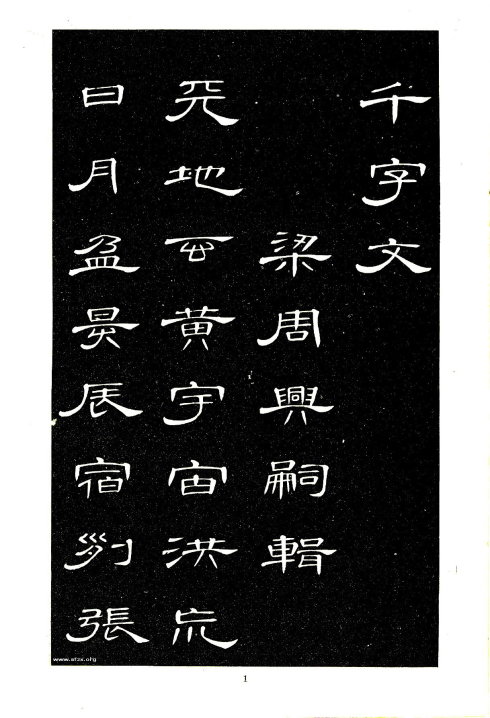 千字文
梁周興嗣輯
天地玄黃宇宙洪荒
日月盈昃辰宿列張
www.sfzx.org
1